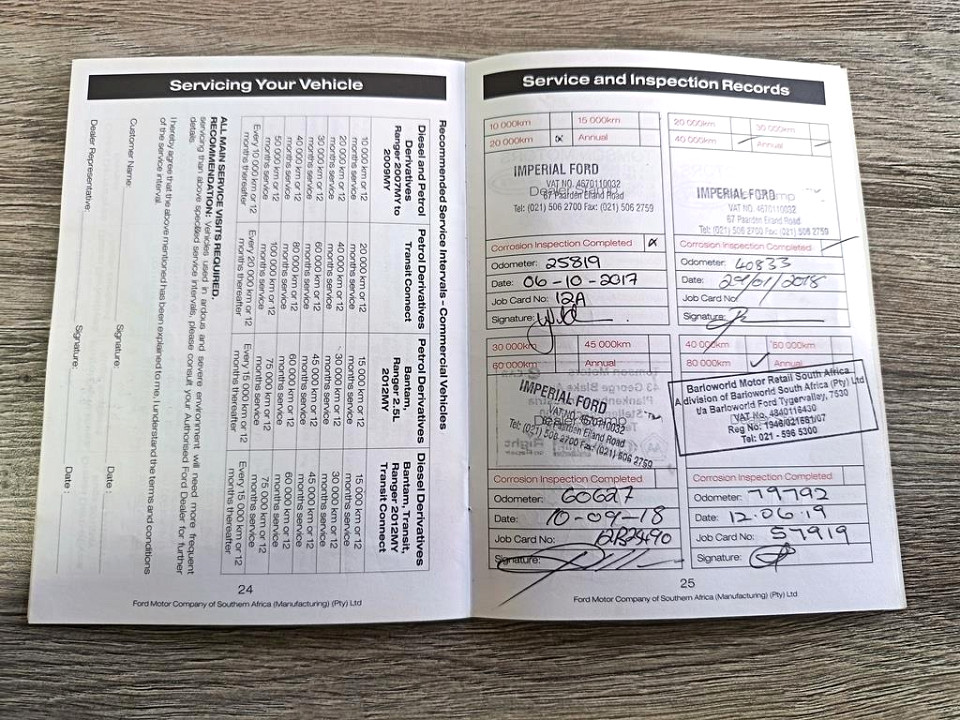 Servicing Your Vehicle
Recommended Service Intervals - Commercial Vehicles
Diesel and Petrol Derivatives Ranger 2007MY to 2009MY
10 000 km or 12 months service
20 000 km or 12 months service
30 000 km or 12 months service
40 000 km or 12 months service
50 000 km or 12 months service
Every 10 000 km or 12 months thereafter
Petrol Derivatives Transit Connect
20 000 km or 12 months service
40 000 km or 12 months service
60 000 km or 12 months service
80 000 km or 12 months service
100 000 km or 12 months service
Every 20 000 km or 12 months thereafter
Petrol Derivatives Bantam, Ranger 2.5L 2012MY
15 000 km or 12 months service
30 000 km or 12 months service
45 000 km or 12 months service
60 000 km or 12 months service
75 000 km or 12 months service
Every 15 000 km or 12 months thereafter
Diesel Derivatives Bantam, Transit, Ranger 2012MY Transit Connect
15 000 km or 12 months service
30 000 km or 12 months service
45 000 km or 12 months service
60 000 km or 12 months service
75 000 km or 12 months service
Every 15 000 km or 12 months thereafter
ALL MAIN SERVICE VISITS REQUIRED.
RECOMMENDATION: Vehicles used in ardous and severe environment will need more frequent
servicing than above specified service intervals, please consult your Authorised Ford Dealer for further
details.
I hereby agree that the above mentioned has been explained to me, I understand the terms and conditions
of the service interval.
Customer Name: Signature: Date:
Dealer Representative: Signature: Date:
24
Ford Motor Company of Southern Africa (Manufacturing) (Pty) Ltd
Service and Inspection Records
10 000km 15 000km
20 000km Annual
IMPERIAL FORD
VAT NO. 4670110032
67 Paarden Eiland Road
Tel: (021) 506 2700 Fax: (021) 506 2759
Corrosion Inspection Completed
Odometer: 25819
Date: 06-10-2017
Job Card No: 12A
Signature:
20 000km 30 000km
40 000km Annual
IMPERIAL FORD
VAT NO. 4670110032
67 Paarden Eiland Road
Tel: (021) 506 2700 Fax: (021) 506 2759
Corrosion Inspection Completed
Odometer: 40833
Date: 29/01/2018
Job Card No:
Signature:
30 000km 45 000km
60 000km Annual
IMPERIAL FORD
VAT NO. 4670110032
67 Paarden Eiland Road
Tel: (021) 506 2700 Fax: (021) 506 2759
Corrosion Inspection Completed
Odometer: 60627
Date: 10-09-18
Job Card No: 12B2490
Signature:
40 000km 60 000km
80 000km Annual
Barloworld Motor Retail South Africa
A division of Barloworld South Africa (Pty) Ltd
t/a Barloworld Ford Tygervalley, 7530
VAT No. 4840116430
Reg No: 1946/021661/07
Tel: 021 - 596 5300
Corrosion Inspection Completed
Odometer: 79792
Date: 12.06.19
Job Card No: 57919
Signature:
25
Ford Motor Company of Southern Africa (Manufacturing) (Pty) Ltd